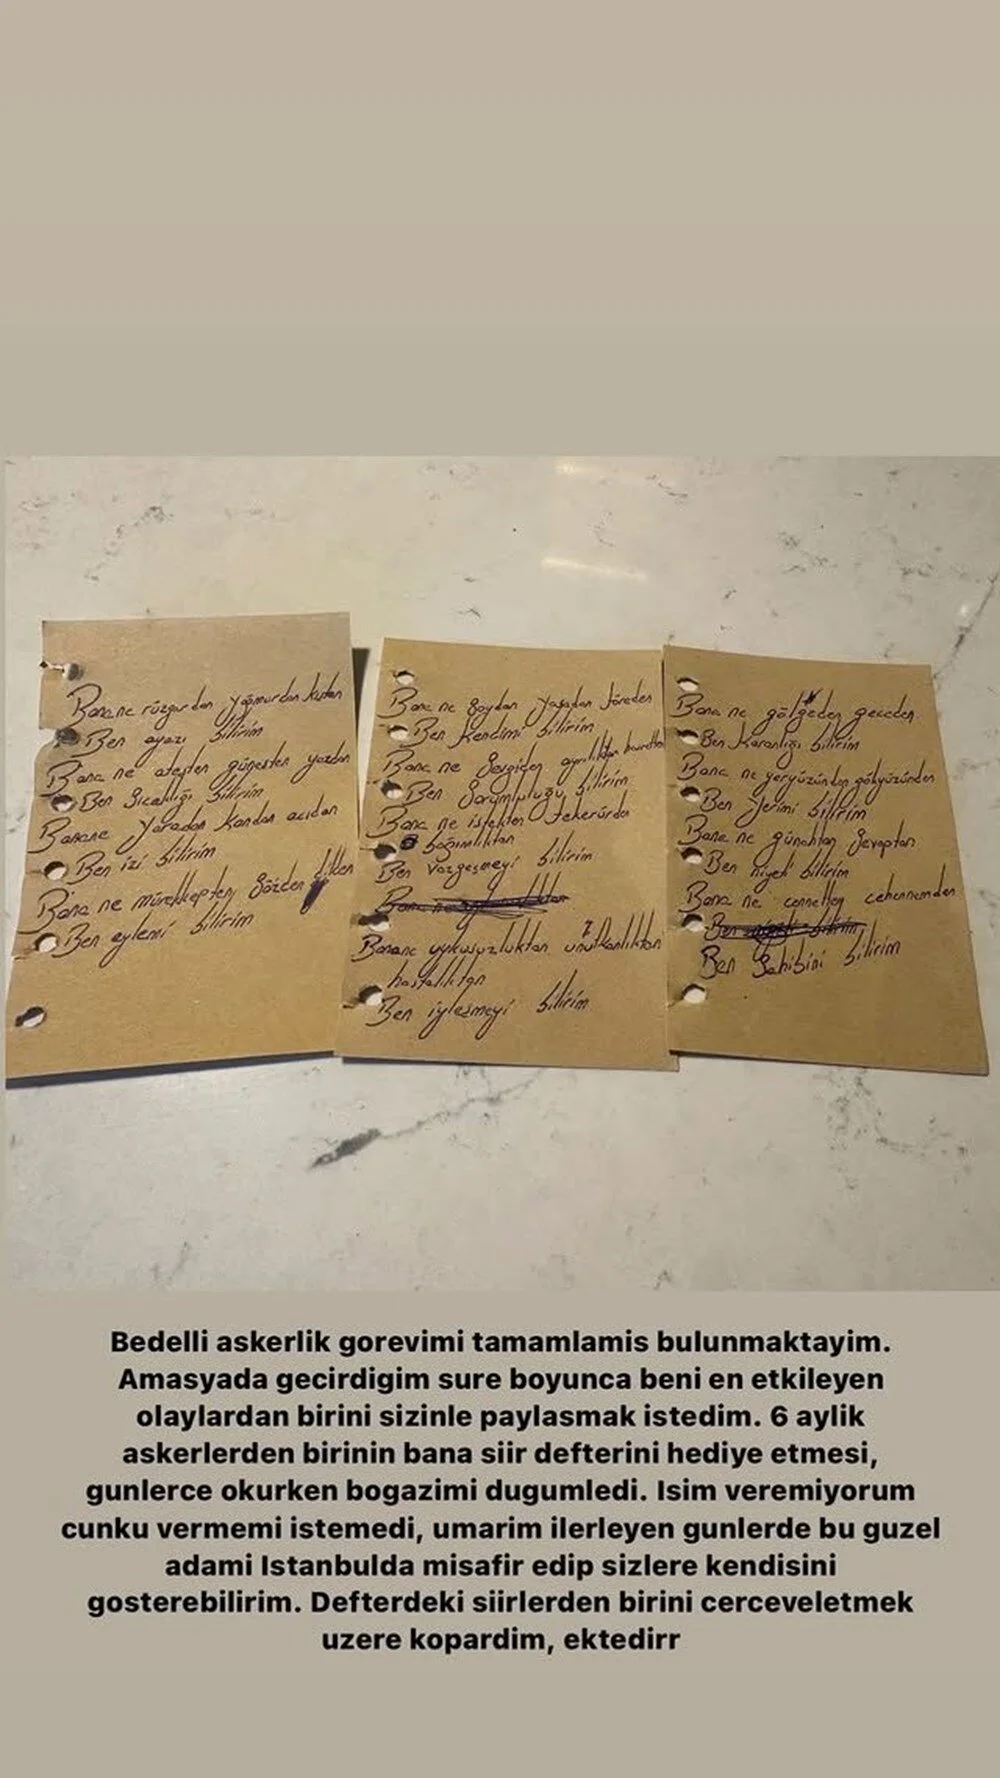 Banane rüzgardan yağmurdan kıştan
Ben ayazı bilirim
Bana ne ateşten güneşten yazdan
Ben Sıcaklığı bilirim
Banane Yaradan Kandan acıdan
Ben izi bilirim
Bana ne mürekkepten Sözden dilden
Ben eylemi bilirim
Bana ne Soydan yasadan töreden
Ben Kendimi bilirim
Bana ne Sevgiden ayrılıktan hasretten
Ben Sorumluluğu bilirim
Bana ne istekten tekerürden
bağımlılıktan
Ben Vazgeşmeyi bilirim
Bana ne
Banane uykusuzluktan unutkanlıktan
hastalıktan
Ben iyleşmeyi bilirim
Bana ne gölgeden geceden
Ben Karanlığı bilirim
Bana ne yeryüzünden gökyüzünden
Ben Yerimi bilirim
Bana ne günahtan Sevaptan
Ben niyeti bilirim
Bana ne cennetten cehennemden
Ben bilirim
Ben Sahibini bilirim
Bedelli askerlik gorevimi tamamlamis bulunmaktayim.
Amasyada gecirdigim sure boyunca beni en etkileyen
olaylardan birini sizinle paylasmak istedim. 6 aylik
askerlerden birinin bana siir defterini hediye etmesi,
gunlerce okurken bogazimi dugumledi. Isim veremiyorum
cunku vermemi istemedi, umarim ilerleyen gunlerde bu guzel
adami Istanbulda misafir edip sizlere kendisini
gosterebilirim. Defterdeki siirlerden birini cerceveletmek
uzere kopardim, ektedirr